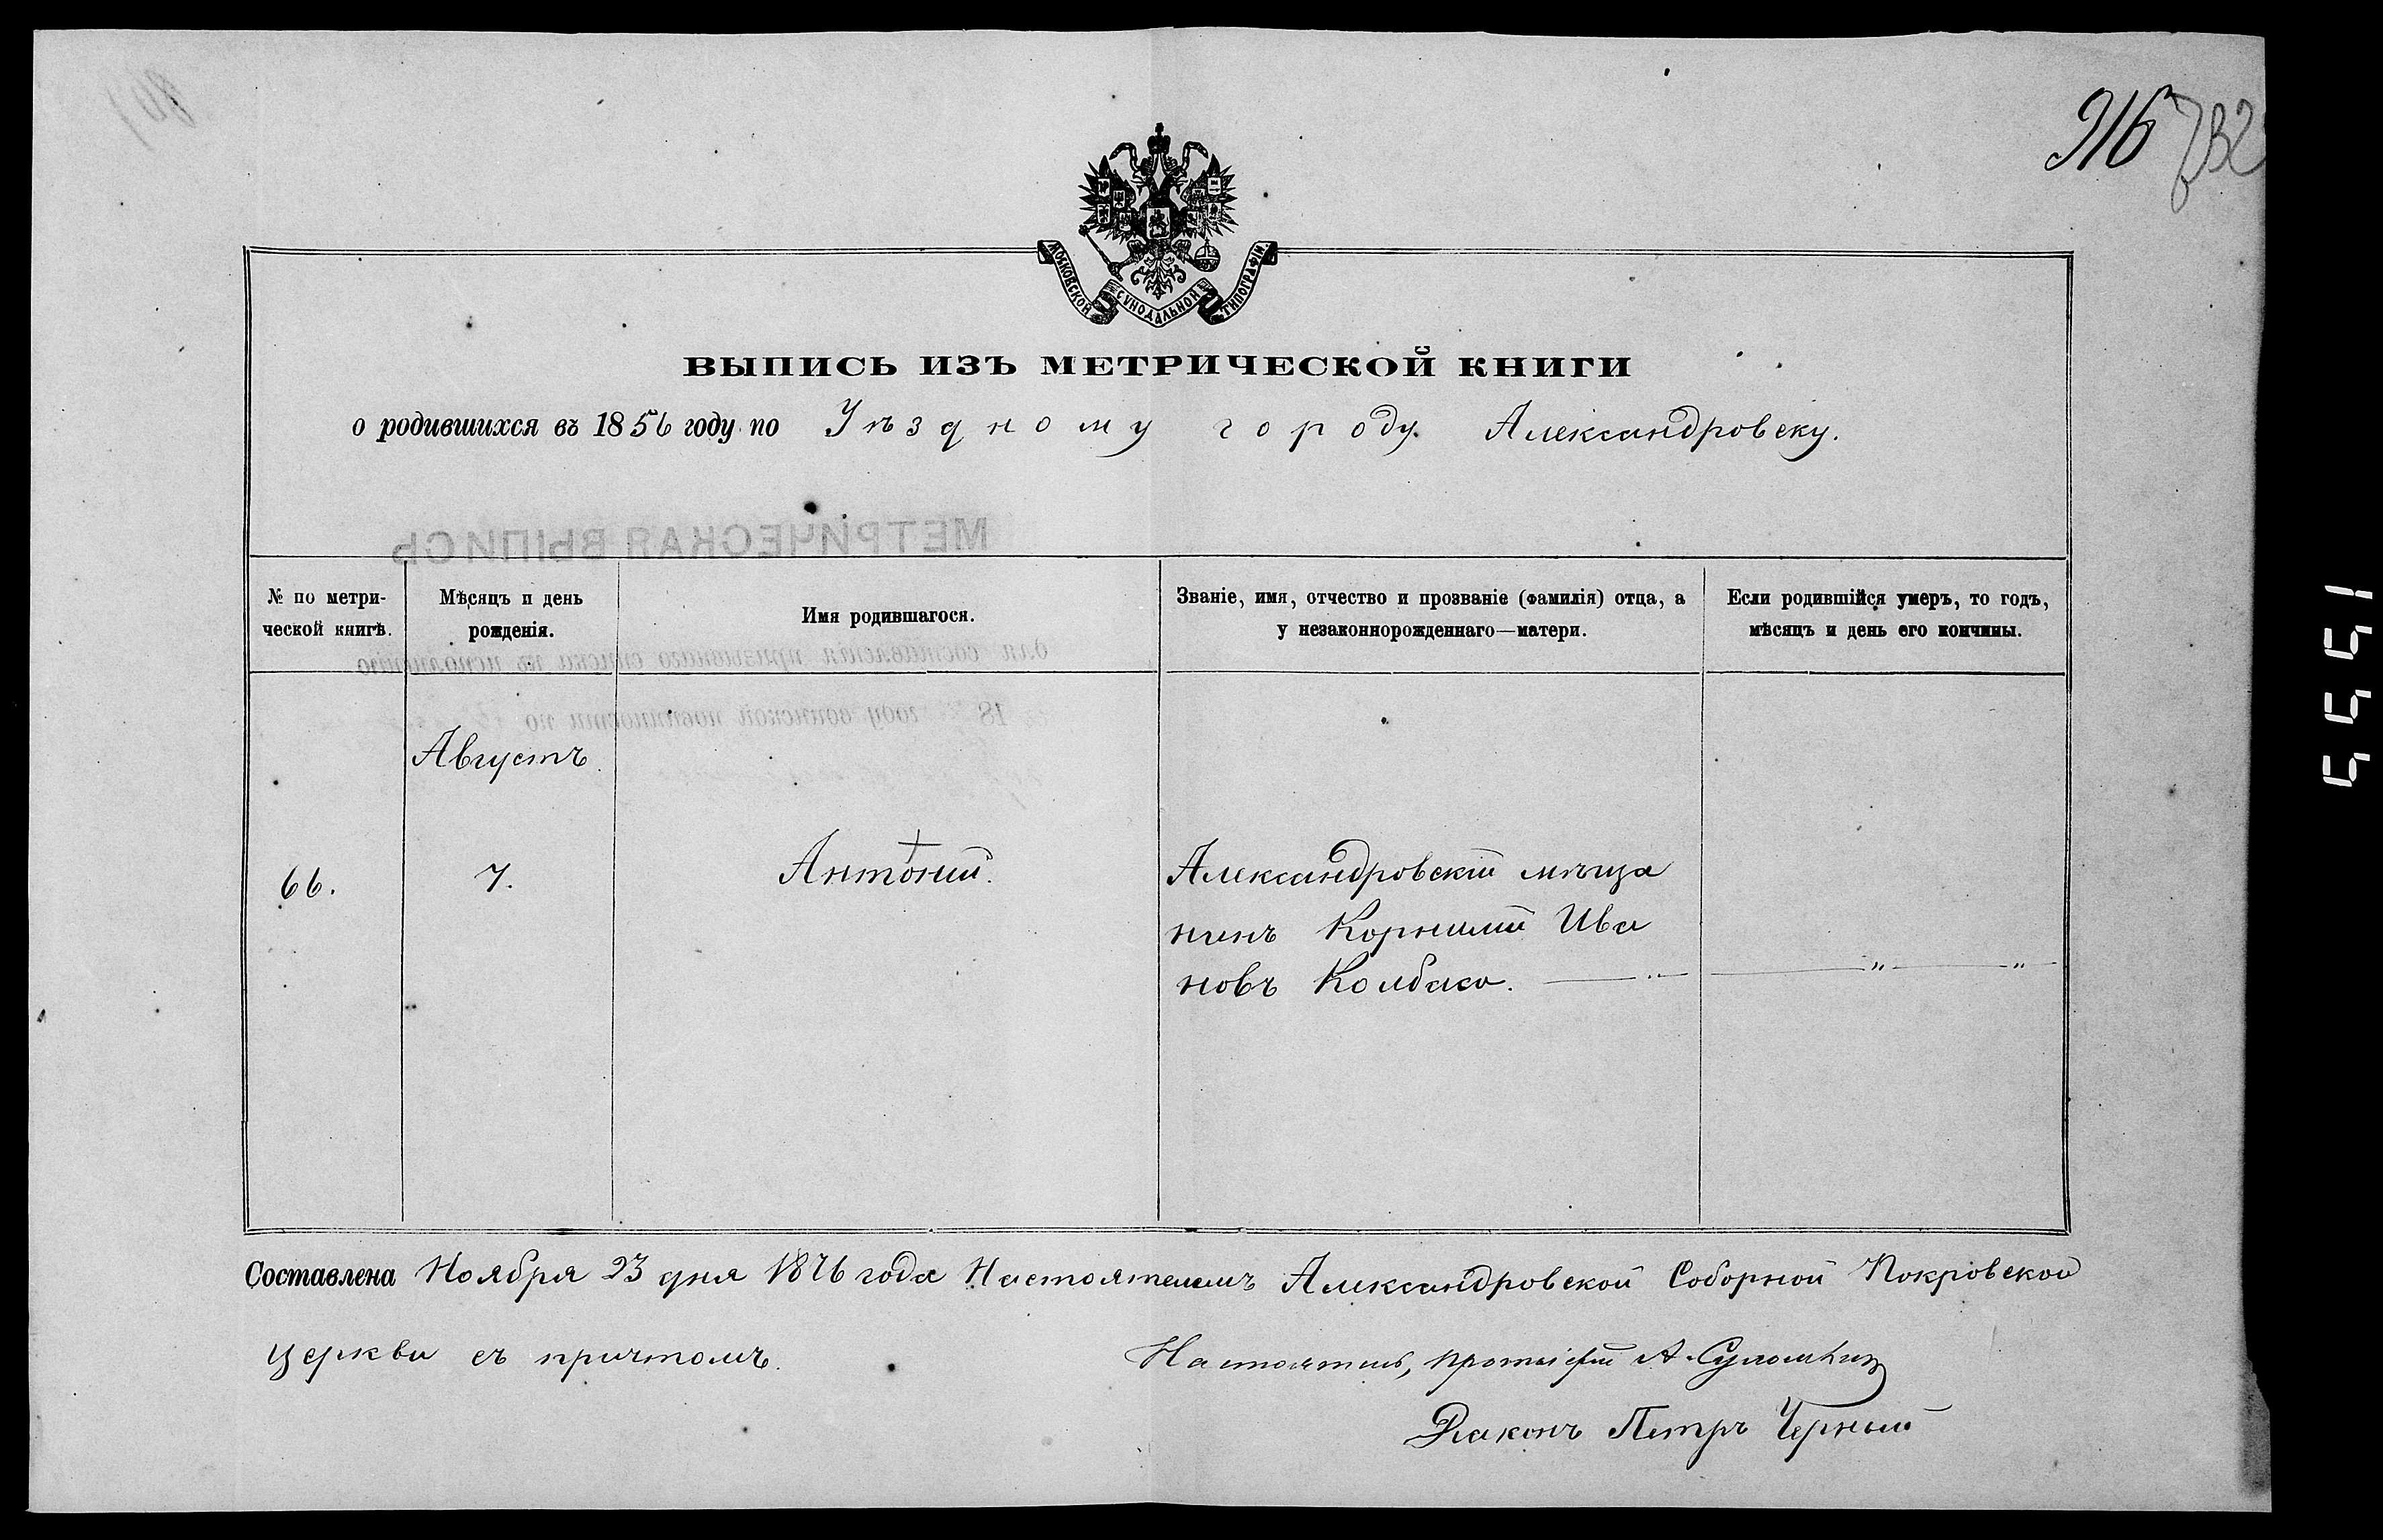 916 732
МОСКОВСКОЙ СѴНОДАЛЬНОЙ ТИПОГРАФІИ
ВЫПИСЬ ИЗЪ МЕТРИЧЕСКОЙ КНИГИ
о родившихся въ 1856 году по Уѣздному городу Александровску.
МЕТРИЧЕСКАЯ ВЫПИСЬ
№ по метри-
ческой книгѣ.
Мѣсяцъ и день
рожденія.
Имя родившагося.
Званіе, имя, отчество и прозваніе (фамилія) отца, а
у незаконнорожденнаго—матери.
Если родившійся умеръ, то годъ,
мѣсяцъ и день его кончины.
для составленія призывнаго списка къ исполненію
18 году воинской повинности по
Августъ
66.
7.
Антоній.
Александровскій мѣща
нинъ Корнилій Ива
новъ Колбаса. — " —
— " — " —
Составлена Ноября 23 дня 1876 года Настоятелемъ Александровской Соборной Покровской
церкви съ причтомъ.
Настоятель, протоіерей А.
Діаконъ Петръ Черный
5551